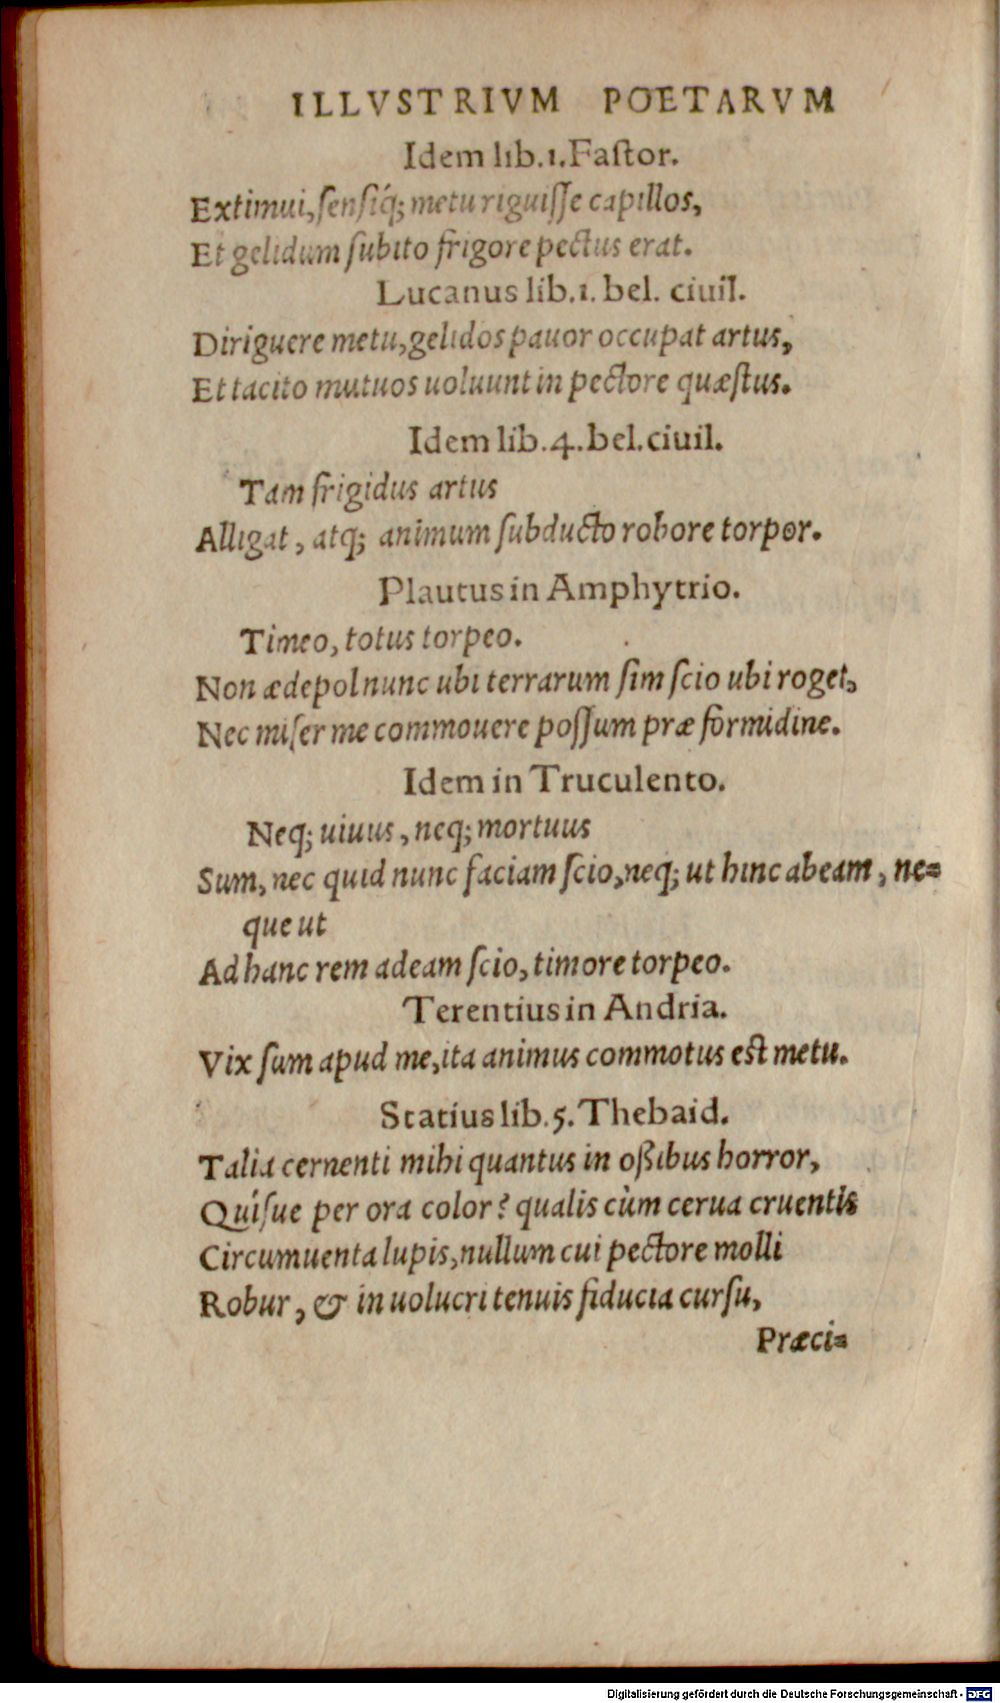 ILLVSTRIVM POETARVM
Idem lib.1.Faſtor.
Extimui,ſenſiq́; metu riguiſſe capillos,
Et gelidum ſubito frigore pectus erat.
Lucanus lib.1. bel. ciuil.
Diriguere metu,gelidos pauor occupat artus,
Et tacito mutuos uoluunt in pectore quæſtus.
Idem lib.4.bel.ciuil.
Tam frigidus artus
Alligat, atq; animum ſubducto robore torpor.
Plautus in Amphytrio.
Timeo, totus torpeo.
Non ædepol nunc ubi terrarum ſim ſcio ubi roget,
Nec miſer me commouere poſſum præ formidine.
Idem in Truculento.
Neq; uiuus, neq; mortuus
Sum, nec quid nunc faciam ſcio,neq; ut hinc abeam, ne=
que ut
Ad hanc rem adeam ſcio, timore torpeo.
Terentius in Andria.
Vix ſum apud me,ita animus commotus eſt metu.
Statius lib.5.Thebaid.
Talia cernenti mihi quantus in oßibus horror,
Quíſue per ora color? qualis cùm cerua cruentis
Circumuenta lupis,nullum cui pectore molli
Robur, & in uolucri tenuis fiducia curſu,
Præci=
Digitalisierung gefördert durch die Deutsche Forschungsgemeinschaft - DFG